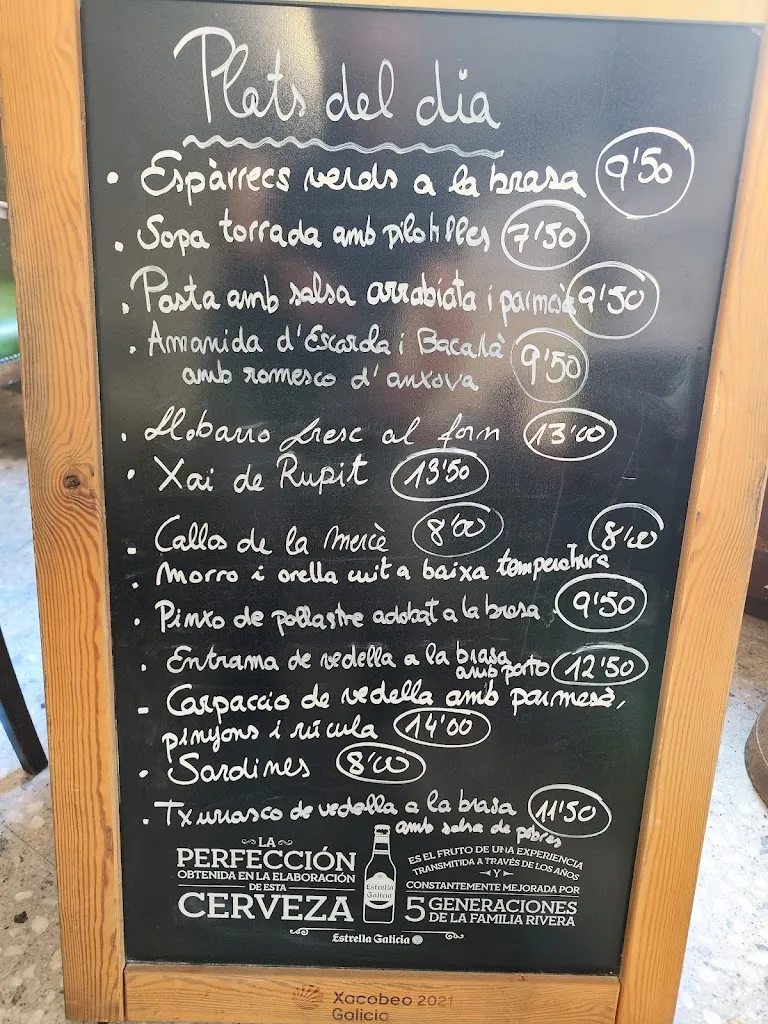 Plats del dia
• Espàrrecs verds a la brasa 9'50
• Sopa torrada amb pilotilles 7'50
• Pasta amb salsa arrabiata i parmesà 9'50
• Amanida d'Escarola i Bacalà
amb romesco d'anxova 9'50
• Llobarro fresc al forn 13'00
• Xai de Rupit 13'50
- Callos de la Mercè 8'00
• Morro i orella cuit a baixa temperatura 8'00
• Pinxo de pollastre adobat a la brasa 9'50
• Entrama de vedella a la brasa
amb porto 12'50
- Carpaccio de vedella amb parmesà,
pinyons i rúcula 14'00
• Sardines 8'00
• Txurrasco de vedella a la brasa 11'50
amb salsa de pebres
LA
PERFECCIÓN
OBTENIDA EN LA ELABORACIÓN
DE ESTA
CERVEZA
Estrella
Galicia
ES EL FRUTO DE UNA EXPERIENCIA
TRANSMITIDA A TRAVÉS DE LOS AÑOS
Y
CONSTANTEMENTE MEJORADA POR
5 GENERACIONES
DE LA FAMILIA RIVERA
Estrella Galicia
Xacobeo 2021
Galicia